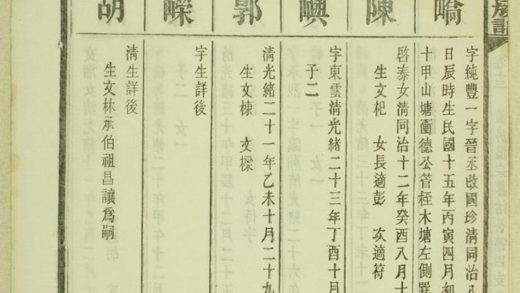 嶠
字純豐一字晉丞啟國珍清同治八
日辰時生民國十五年丙寅四月初
十甲山塘薗德公菅桎木塘左側巽
陳
啓泰女清同治十二年癸酉八月十
生文杞 女長適彭 次適符
嶼
字東雲清光緒二十三年丁酉十月
子二
郭
清光緒二十一年乙未十月二十九
生文棟 文樑
嶸
字生詳後
胡
清生詳後
生文林承伯祖昌讓爲嗣